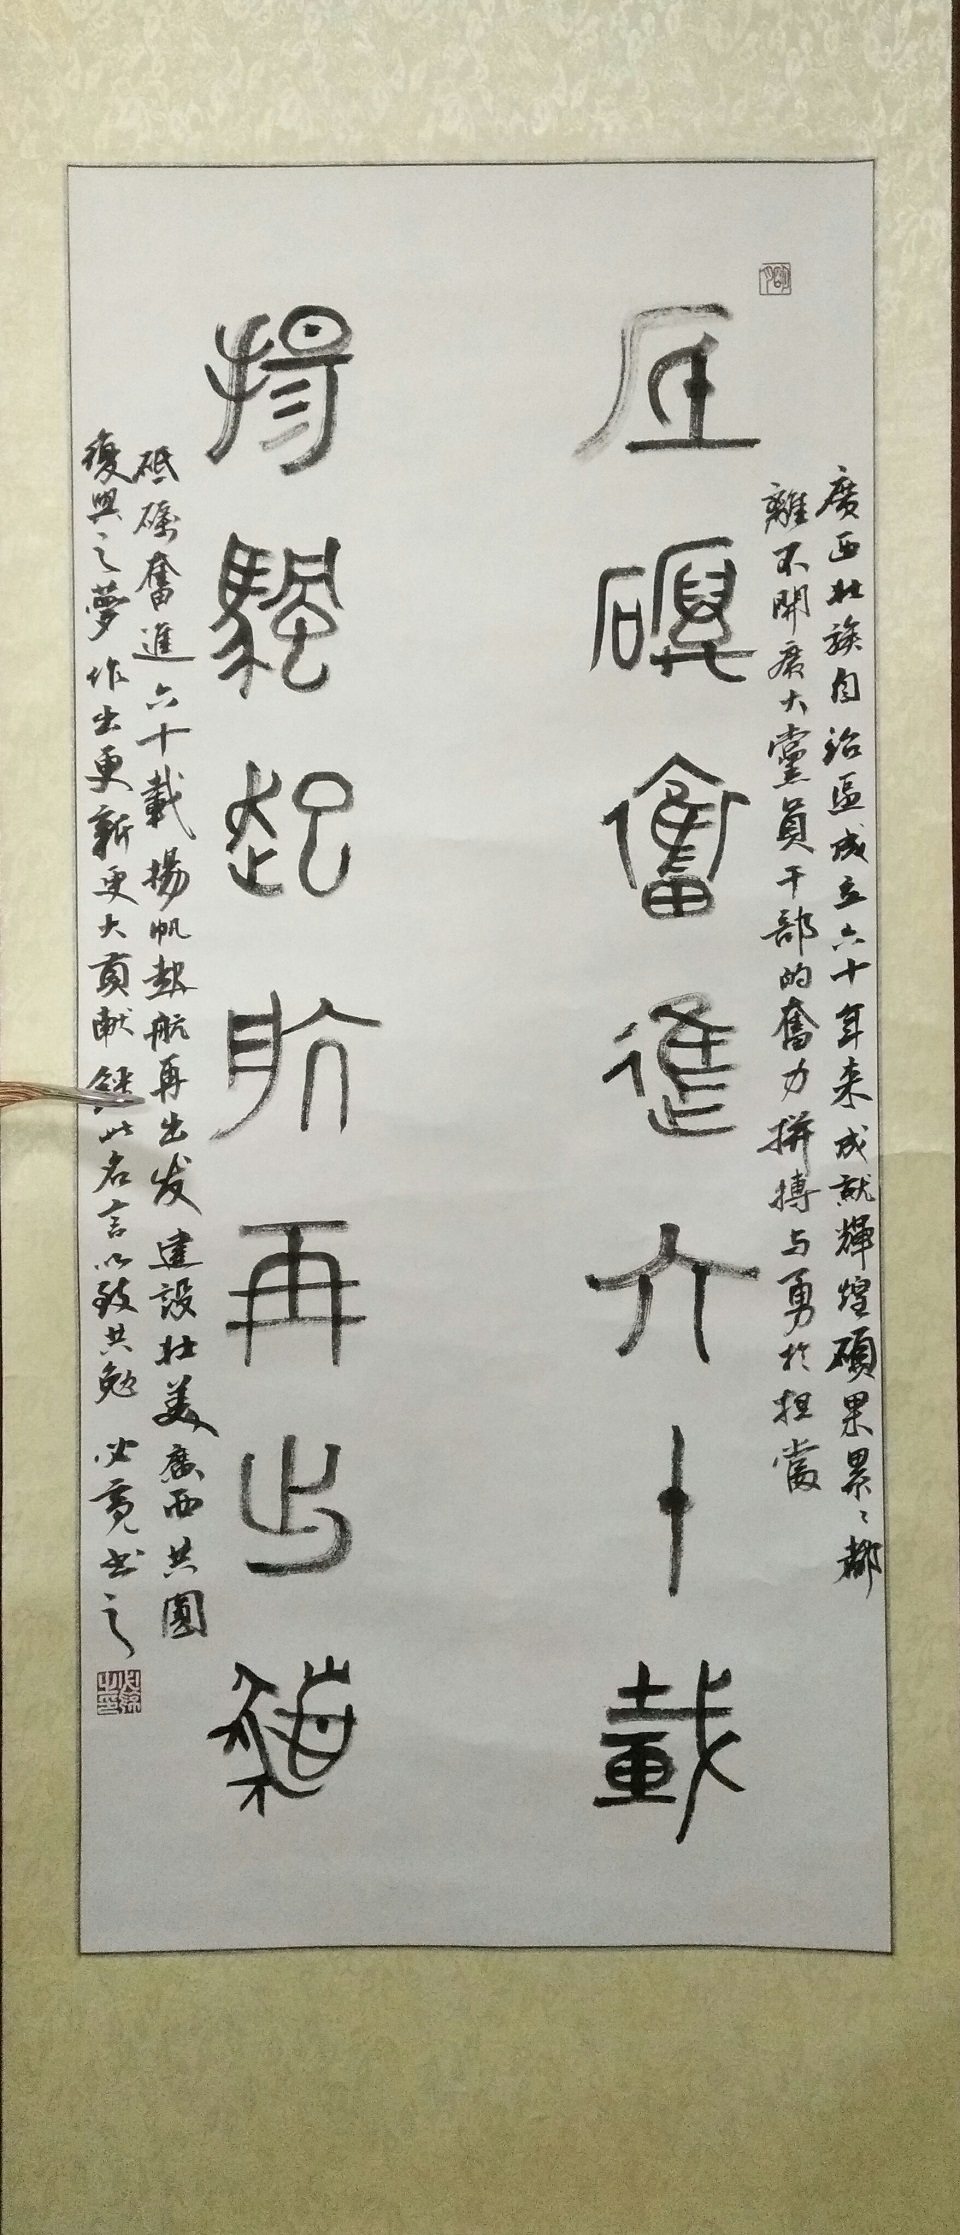 廣西壯族自治區成立六十年来成就輝煌碩果累〻都
離不開廣大黨員干部的奮力拼搏与勇於担當
厎礪奮進六十載
揚颿起航再出發
砥礪奮進六十載揚帆起航再出发建設壯美廣西共圓
復興之夢作出更新更大貢献録此名言以致共勉必书之